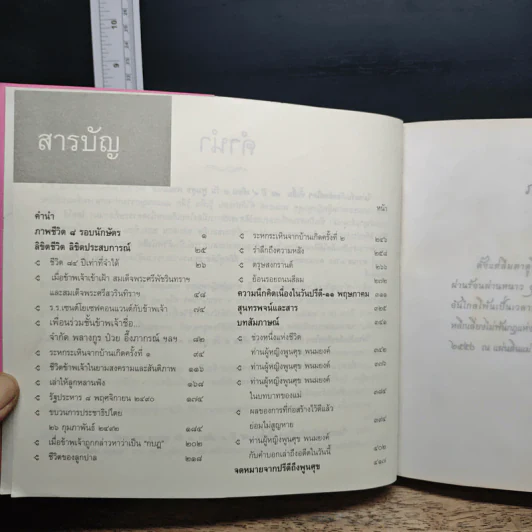 สารบัญ
หน้า
คำนำ
ภาพชีวิต ๘ รอบนักษัตร ๑
ลิขิตชีวิต ลิขิตประสบการณ์ ๒๕
ชีวิต ๘๔ ปีเท่าที่จำได้ ๒๖
เมื่อข้าพเจ้าเข้าเฝ้า สมเด็จพระศรีพัชรินทราฯ
และสมเด็จพระศรีสวรินทิราฯ ๔๘
ร.ร.เซนต์โยเซฟคอนแวนต์กับข้าพเจ้า ๗๔
เพื่อนร่วมชั้นข้าพเจ้าชื่อ...
จำกัด พลางกูร ป๋วย อึ๊งภากรณ์ ฯลฯ ๘๒
ระทกระเทินจากบ้านเกิดครั้งที่ ๑ ๙๔
ชีวิตข้าพเจ้าในยามสงครามและสันติภาพ ๑๑๖
เล่าให้ลูกหลานฟัง ๑๖๘
รัฐประหาร ๘ พฤศจิกายน ๒๔๙๐ ๑๗๔
ขบวนการประชาธิปไตย
๒๖ กุมภาพันธ์ ๒๔๙๒ ๑๘๔
เมื่อข้าพเจ้าถูกกล่าวหาว่าเป็น "กบฏ" ๒๐๒
ชีวิตของลูกปาล ๒๑๘
ระทกระเทินจากบ้านเกิดครั้งที่ ๒
รำลึกถึงความหลัง
ดรุษสงกรานต์
ย้อนรอยถนนสีลม
ความนึกคิดเนื่องในวันปรีดี-๑๑ พฤษภาคม
สุนทรพจน์และสาร
บทสัมภาษณ์
ช่วงหนึ่งแห่งชีวิต
ท่านผู้หญิงพูนศุข พนมยงค์
ท่านผู้หญิงพูนศุข พนมยงค์
ในบทบาทของแม่
ผลของการที่ก่อสร้างไว้ดีแล้ว
ย่อมไม่สูญหาย
ท่านผู้หญิงพูนศุข พนมยงค์
กับคำบอกเล่าถึงอดีตในวันนี้ ๔๐๒
จดหมายจากปรีดีถึงพูนศุข